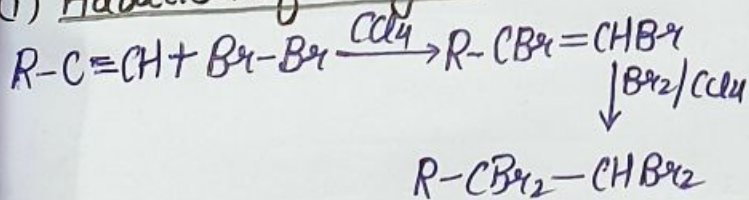 (1)
R-C≡CH + Br-Br —CCl4→ R-CBr=CHBr
↓ Br2/CCl4
R-CBr2-CHBr2